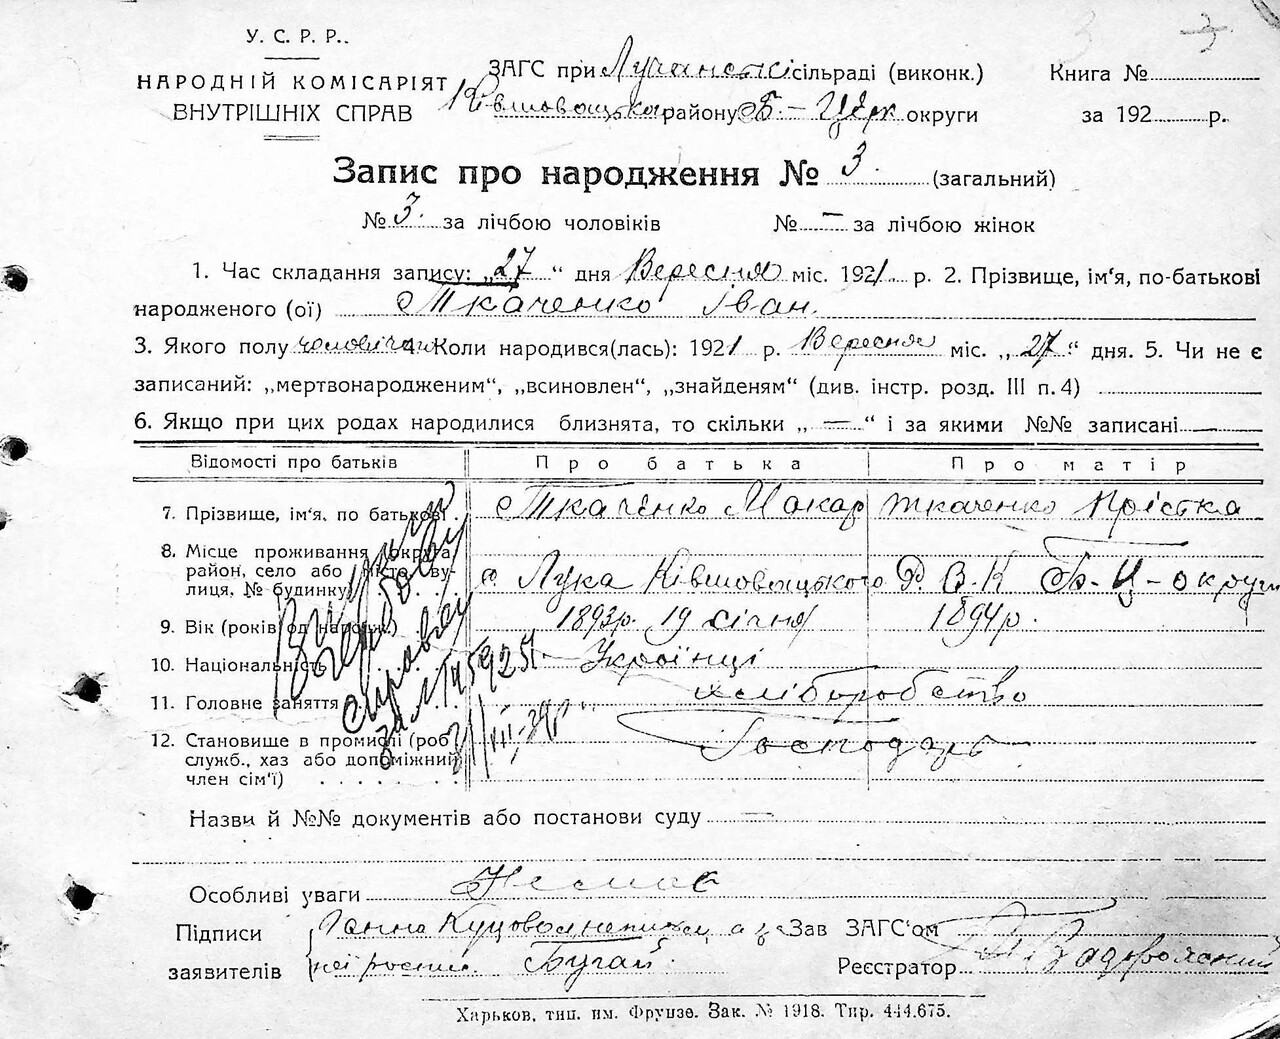 3
У. С. Р. Р..
НАРОДНІЙ КОМІСАРІЯТ
ВНУТРІШНІХ СПРАВ
ЗАГС при Лучанські сільраді (виконк.)
Ківшоватська району Б.-Церк округи
Книга №
за 192 р.
Запис про народження № 3. (загальний)
№ 3. за лічбою чоловіків № — за лічбою жінок
1. Час складання запису: „27“ дня Вересня міс. 1921 р. 2. Прізвище, ім'я, по-батькові
народженого (ої) Ткаченко Іван.
3. Якого полу чоловічай Коли народився(лась): 1921 р. Вересня міс. „27“ дня. 5. Чи не є
записаний: „мертвонародженим“, „всиновлен“, „знайденям“ (див. інстр. розд. III п. 4)
6. Якщо при цих родах народилися близнята, то скільки „—“ і за якими №№ записані —
Відомості про батьків Про батька Про матір
7. Прізвище, ім'я, по батькові. Ткаченко Макар Ткаченко Крістка
8. Місце проживання (округа
район, село або місто, ву-
лиця, № будинку) с Лука Ківшоватського Р. В. К Б.-Ц-округи
9. Вік (років од народж.) 1893р. 19 січня 1894р.
10. Національність Українці
11. Головне заняття хліборобство
12. Становище в промислі (роб. Господарь
служб., хаз або допоміжний
член сім'ї)
за № 145925
Назви й №№ документів або постанови суду —
Особливі уваги Немає
Підписи Ганна а за Зав ЗАГС'ом
заявителів неї роспис. Бугай. Реєстратор
Харьков, тип. им. Фрунзе. Зак. № 1918. Тир. 444.675.